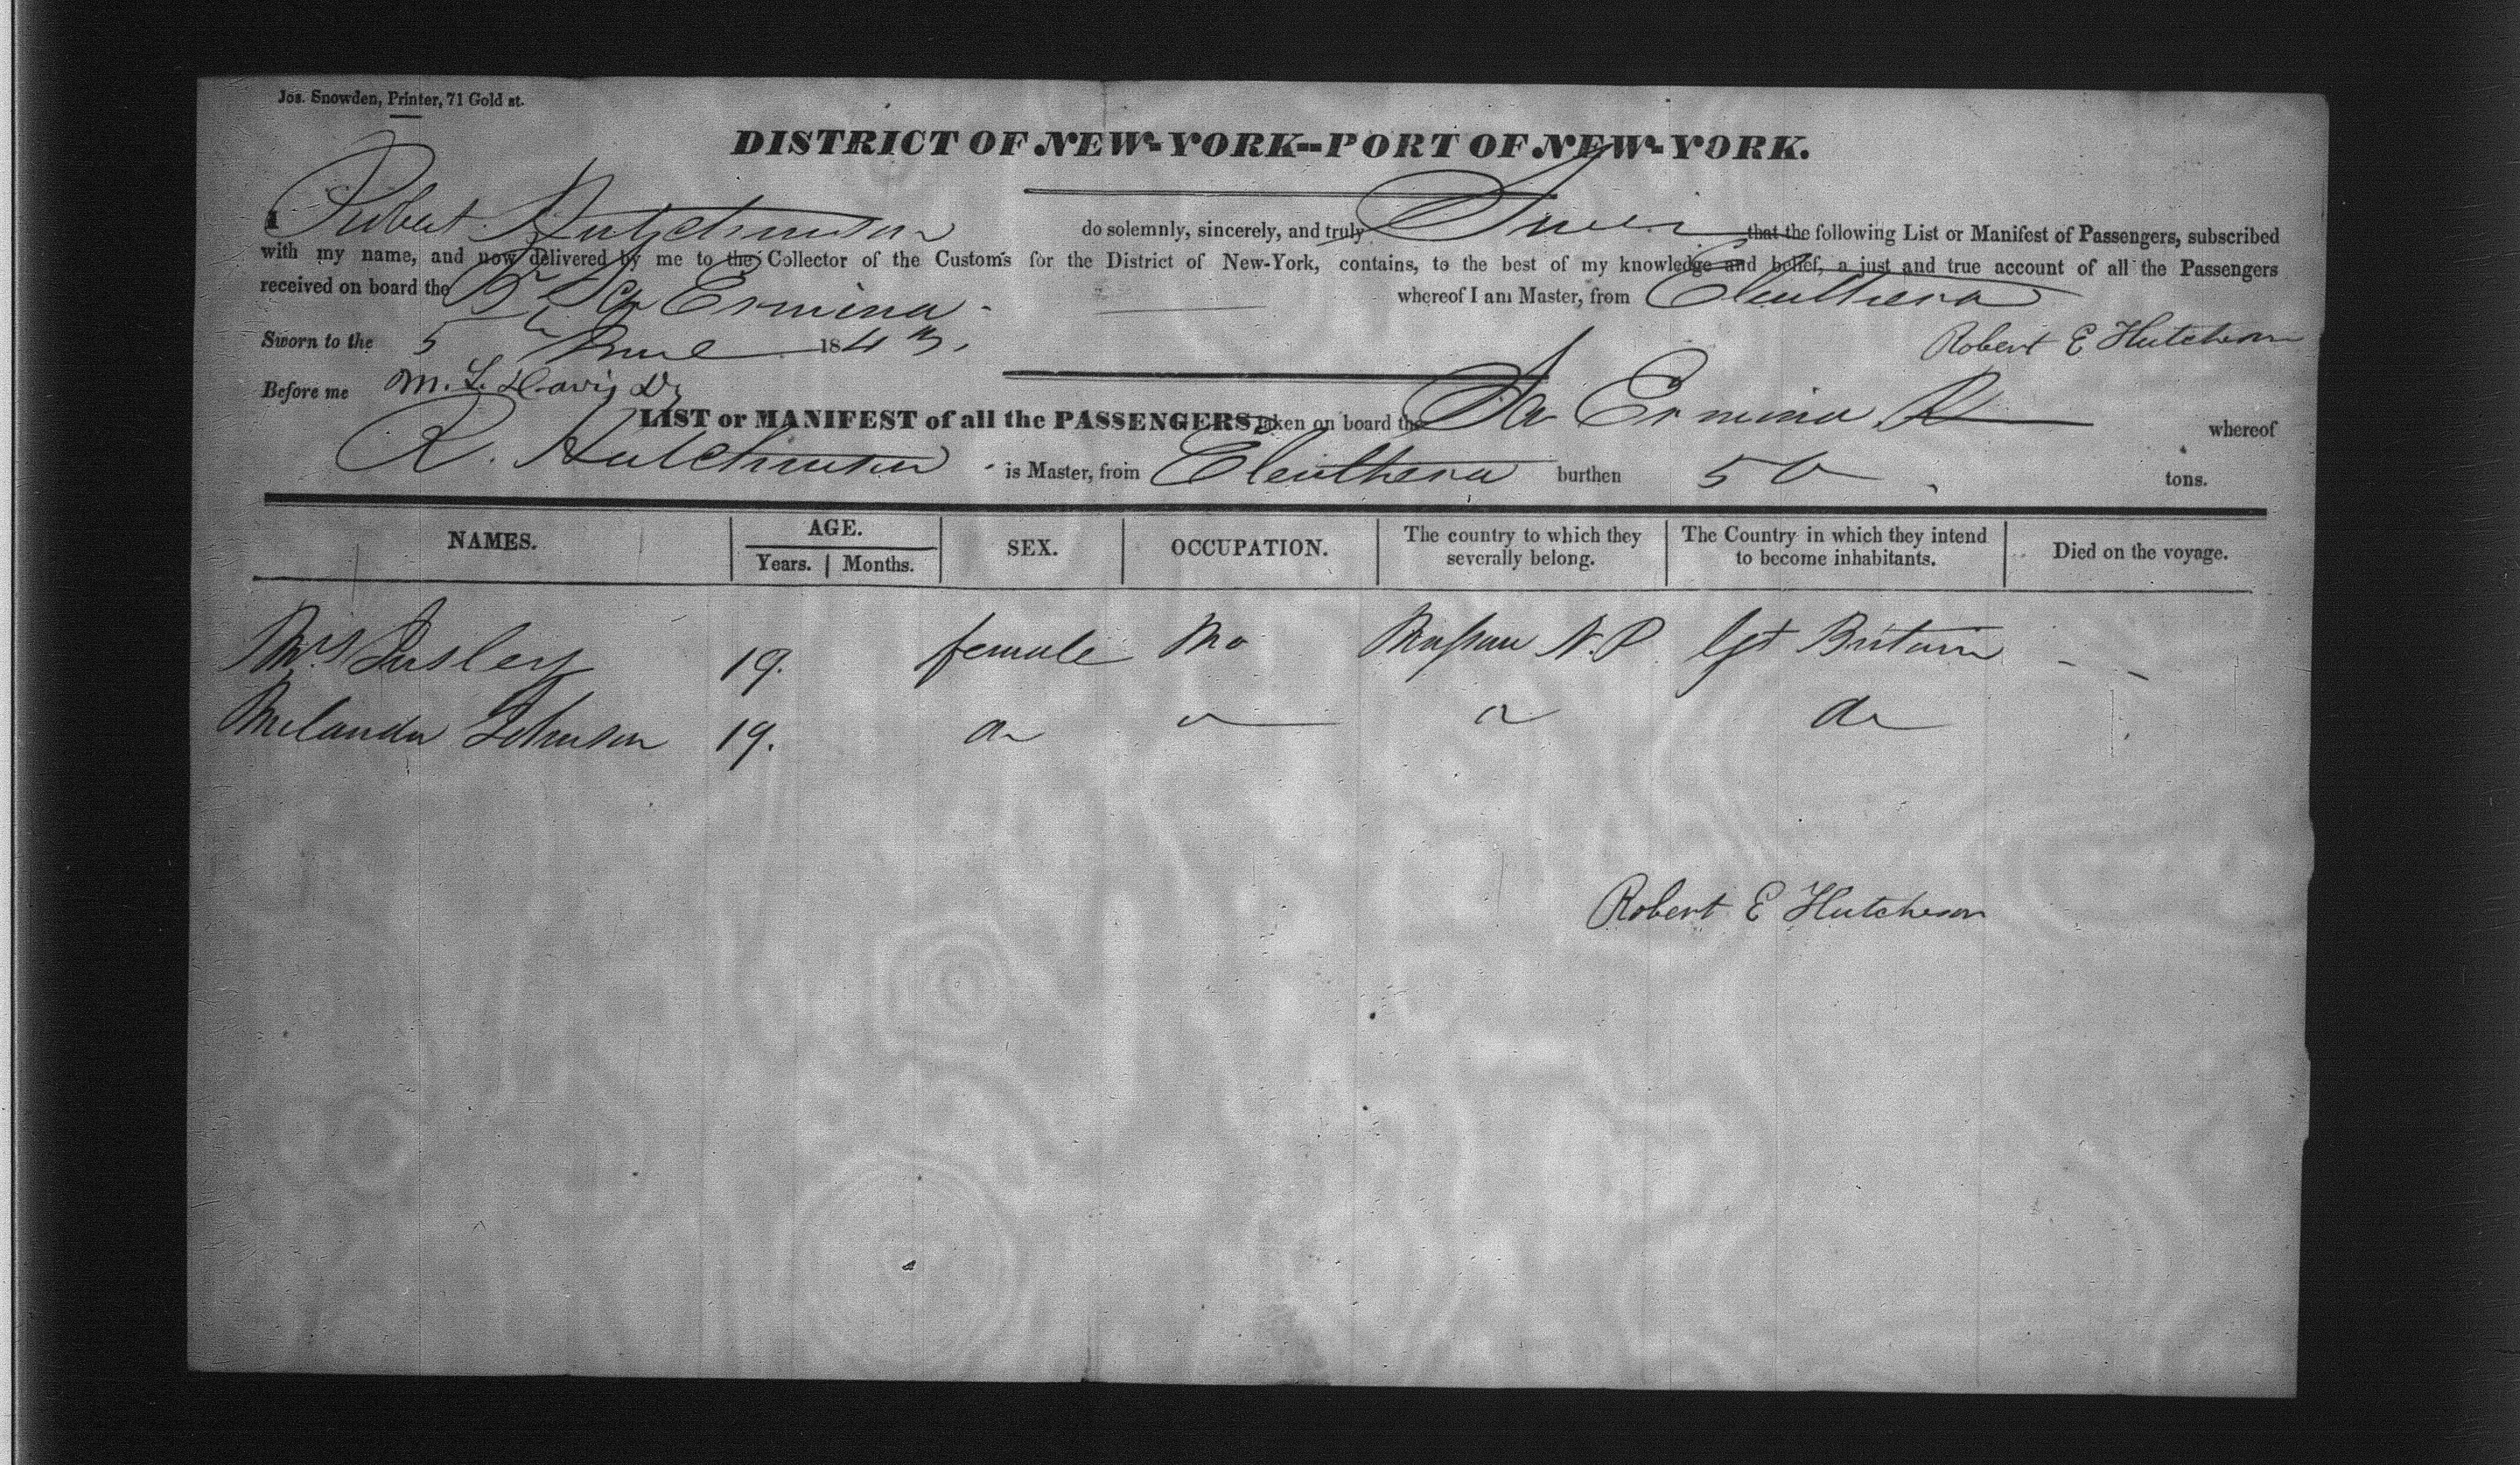 Jos. Snowden, Printer, 71 Gold st.
DISTRICT OF NEW-YORK--PORT OF NEW-YORK.
I Robert Hutchinson do solemnly, sincerely, and truly Swear that the following List or Manifest of Passengers, subscribed
with my name, and now delivered by me to the Collector of the Customs for the District of New-York, contains, to the best of my knowledge and belief, a just and true account of all the Passengers
received on board the Br Sch Ermina whereof I am Master, from Eleuthera
Sworn to the 5th June 1843. Robert E Hutcheson
Before me M. L. Davis
LIST or MANIFEST of all the PASSENGERS taken on board the Sch Ermina whereof
R. Hutchinson is Master, from Eleuthera burthen 50 tons.
NAMES. AGE. SEX. OCCUPATION. The country to which they severally belong. The Country in which they intend to become inhabitants. Died on the voyage.
Years. Months.
Mrs 19. female Nassau N.P. Gt Britain - -
Melanda Johnson 19. do do
Robert E Hutcheson